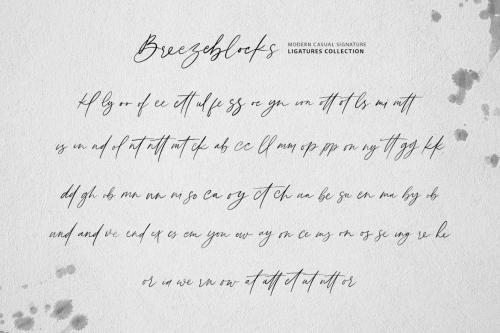 Breezeblocks
MODERN CASUAL SIGNATURE
LIGATURES COLLECTION
ly oo of ee ett ul fe ss oe yn von ott ot ls mi mtt
is in nd ol nt ntt mt ck ab cc ll mm op pp on ny tt gg kk
dd gh ob mn nn ni so ca oy ct ch ua be su en ma by ob
und and ve end ex es em you ew ay on ce ms on os se ing re he
or ia we rn ow at att et ut utt or